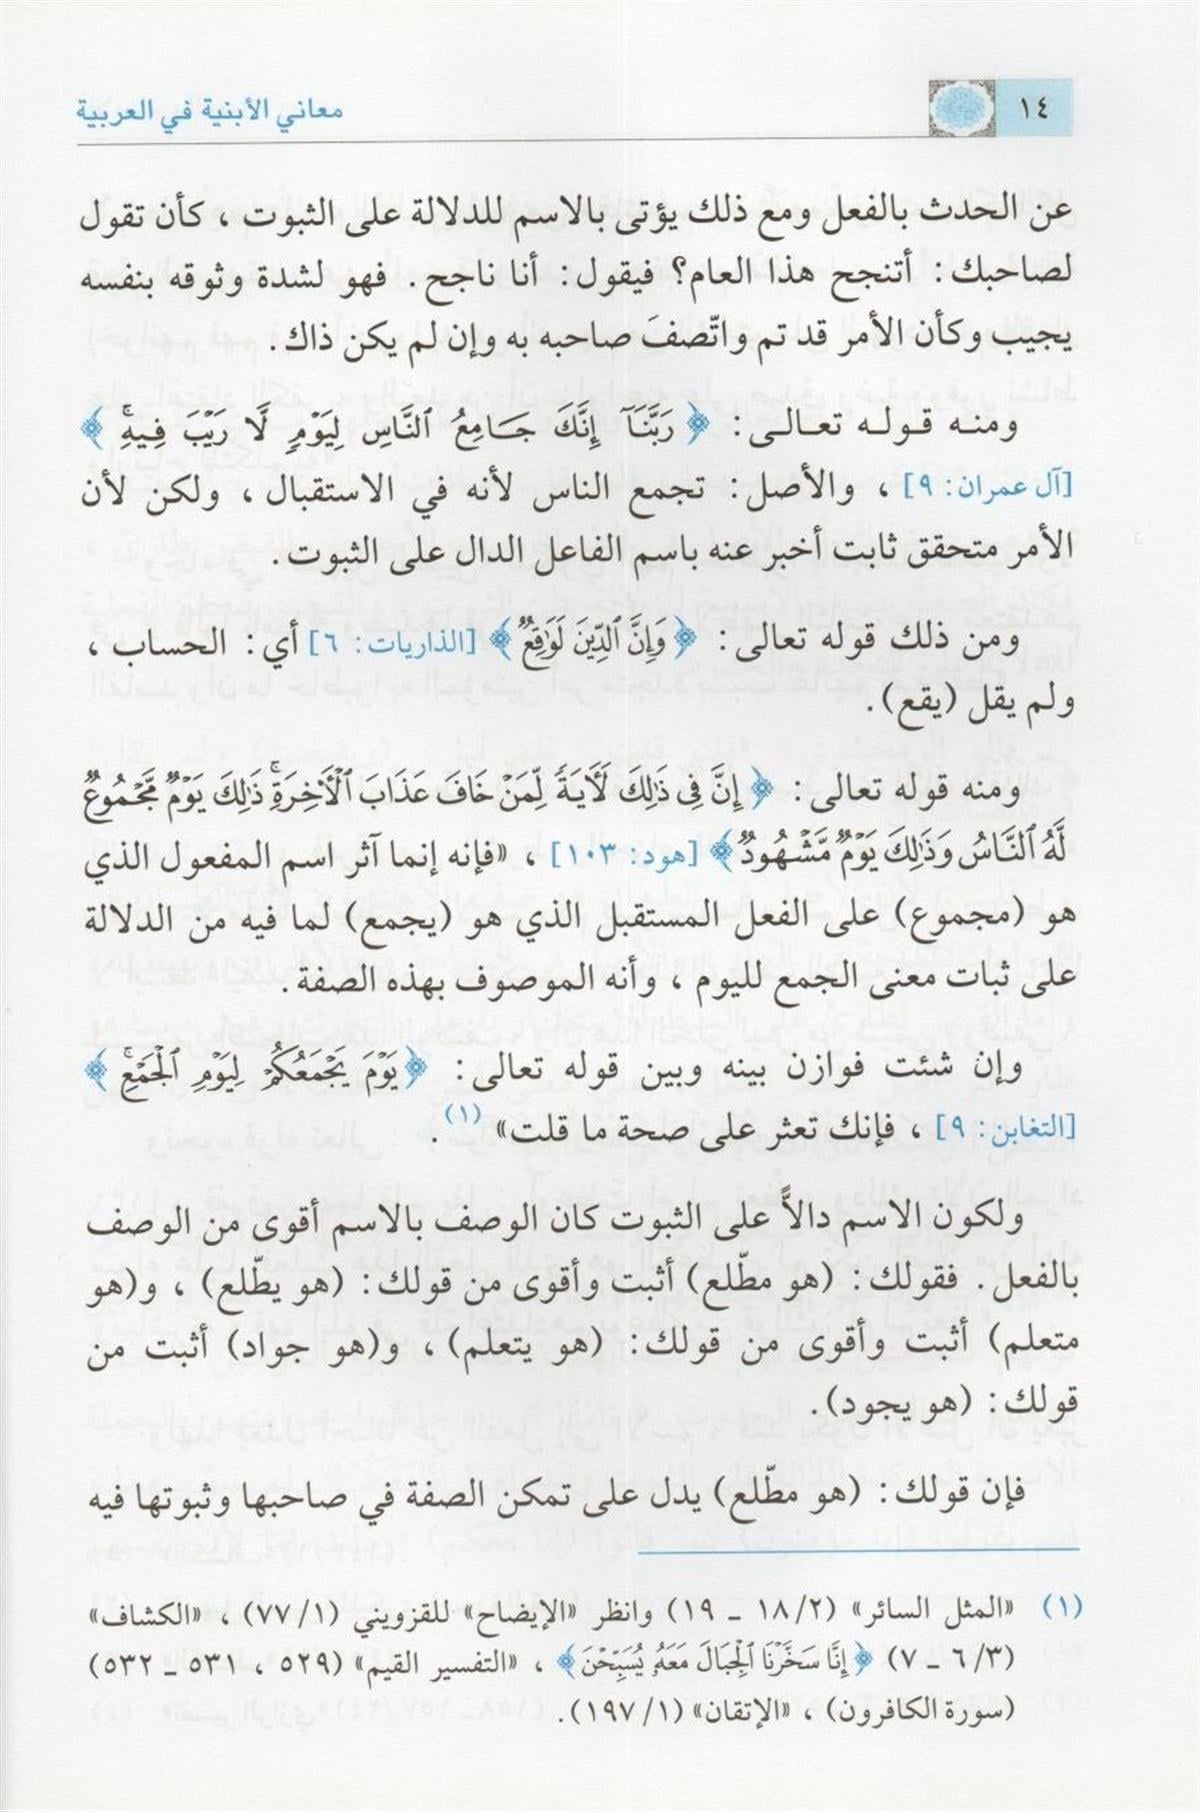 ١٤
معاني الأبنية في العربية
عن الحدث بالفعل ومع ذلك يؤتى بالاسم للدلالة على الثبوت ، كأن تقول
لصاحبك : أتنجح هذا العام؟ فيقول : أنا ناجح . فهو لشدة وثوقه بنفسه
يجيب وكأن الأمر قد تم واتّصفَ صاحبه به وإن لم يكن ذاك .
ومنه قوله تعالى : ﴿ رَبَّنَآ إِنَّكَ جَامِعُ ٱلنَّاسِ لِيَوْمٍ لَّا رَيْبَ فِيهِۚ ﴾
[آل عمران : ٩] ، والأصل : تجمع الناس لأنه في الاستقبال ، ولكن لأن
الأمر متحقق ثابت أخبر عنه باسم الفاعل الدال على الثبوت .
ومن ذلك قوله تعالى : ﴿ وَإِنَّ ٱلدِّينَ لَوَٰقِعٌ ﴾ [الذاريات : ٦] أي : الحساب ،
ولم يقل (يقع) .
ومنه قوله تعالى : ﴿ إِنَّ فِى ذَٰلِكَ لَأَيَةً لِّمَنْ خَافَ عَذَابَ ٱلْأَخِرَةِۚ ذَٰلِكَ يَوْمٌ مَّجْمُوعٌ
لَّهُ ٱلنَّاسُ وَذَٰلِكَ يَوْمٌ مَّشْهُودٌ ﴾ [هود : ١٠٣] ، «فإنه إنما آثر اسم المفعول الذي
هو (مجموع) على الفعل المستقبل الذي هو (يجمع) لما فيه من الدلالة
على ثبات معنى الجمع لليوم ، وأنه الموصوف بهذه الصفة .
وإن شئت فوازن بينه وبين قوله تعالى : ﴿ يَوْمَ يَجْمَعُكُمْ لِيَوْمِ ٱلْجَمْعِۚ ﴾
[التغابن : ٩] ، فإنك تعثر على صحة ما قلت» (١) .
ولكون الاسم دالاًّ على الثبوت كان الوصف بالاسم أقوى من الوصف
بالفعل . فقولك : (هو مطّلع) أثبت وأقوى من قولك : (هو يطّلع) ، و(هو
متعلم) أثبت وأقوى من قولك : (هو يتعلم) ، و(هو جواد) أثبت من
قولك : (هو يجود) .
فإن قولك : (هو مطّلع) يدل على تمكن الصفة في صاحبها وثبوتها فيه
(١) «المثل السائر» (٢/ ١٨ ـ ١٩) وانظر «الإيضاح» للقزويني (١/ ٧٧) ، «الكشاف»
(٣/ ٦ ـ ٧) ﴿ إِنَّا سَخَّرْنَا ٱلْجِبَالَ مَعَهُۥ يُسَبِّحْنَ ﴾ ، «التفسير القيم» (٥٢٩ ، ٥٣١ ـ ٥٣٢)
(سورة الكافرون) ، «الإتقان» (١/ ١٩٧) .